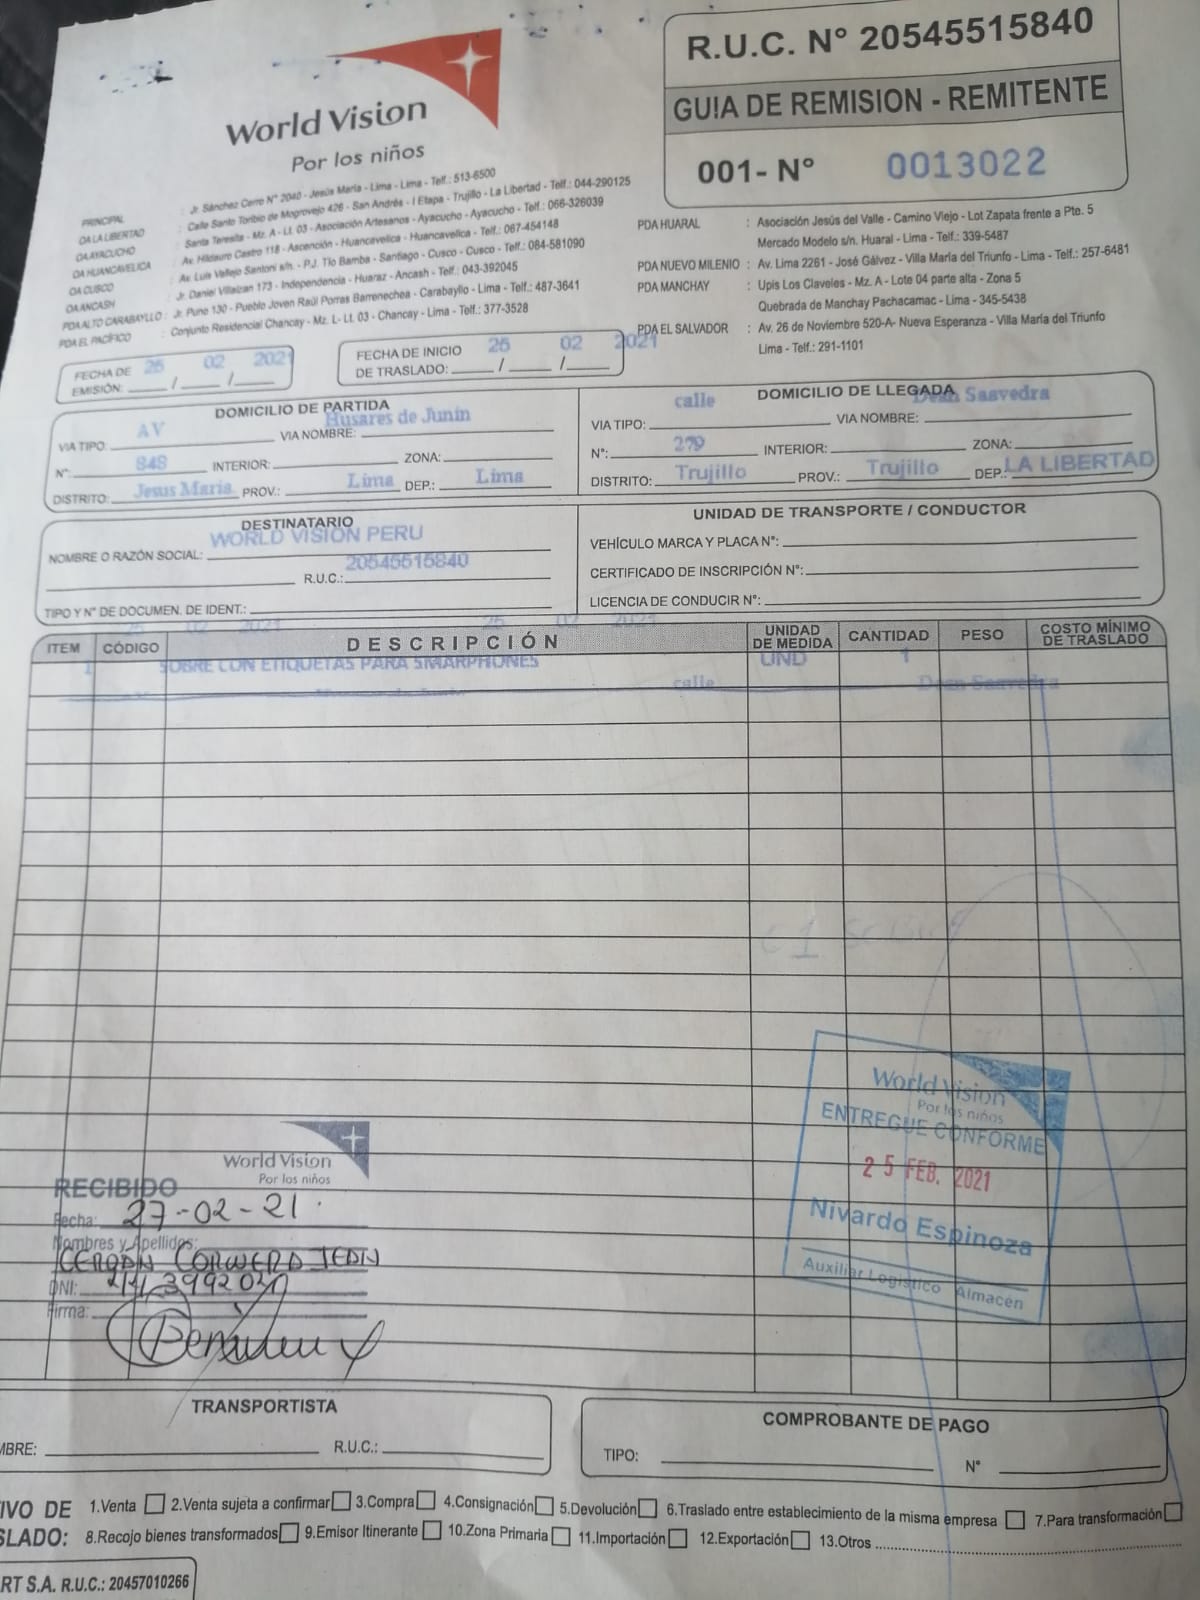 World Vision
Por los niños
R.U.C. N° 20545515840
GUIA DE REMISION - REMITENTE
001- N° 0013022
PRINCIPAL : Jr. Sánchez Cerro N° 2040 - Jesús María - Lima - Lima - Telf.: 513-6500
OA LA LIBERTAD : Calle Santo Toribio de Mogrovejo 426 - San Andrés - I Etapa - Trujillo - La Libertad - Telf.: 044-290125
OA AYACUCHO : Santa Teresita - Mz. A - Lt. 03 - Asociación Artesanos - Ayacucho - Ayacucho - Telf.: 066-326039
OA HUANCAVELICA : Av. Hildauro Castro 118 - Ascención - Huancavelica - Huancavelica - Telf.: 067-454148
OA CUSCO : Av. Luis Vallejo Santoni s/n. - P.J. Tío Bamba - Santiago - Cusco - Cusco - Telf.: 084-581090
OA ANCASH : Jr. Daniel Villaizan 173 - Independencia - Huaraz - Ancash - Telf.: 043-392045
PDA ALTO CARABAYLLO : Jr. Puno 130 - Pueblo Joven Raúl Porras Barrenechea - Carabayllo - Lima - Telf.: 487-3641
PDA EL PACÍFICO : Conjunto Residencial Chancay - Mz. L- Lt. 03 - Chancay - Lima - Telf.: 377-3528
PDA HUARAL : Asociación Jesús del Valle - Camino Viejo - Lot Zapata frente a Pte. 5
Mercado Modelo s/n. Huaral - Lima - Telf.: 339-5487
PDA NUEVO MILENIO : Av. Lima 2261 - José Gálvez - Villa María del Triunfo - Lima - Telf.: 257-6481
PDA MANCHAY : Upis Los Claveles - Mz. A - Lote 04 parte alta - Zona 5
Quebrada de Manchay Pachacamac - Lima - 345-5438
PDA EL SALVADOR : Av. 26 de Noviembre 520-A- Nueva Esperanza - Villa María del Triunfo
Lima - Telf.: 291-1101
FECHA DE EMISIÓN: 25 / 02 / 2021
FECHA DE INICIO DE TRASLADO: 25 / 02 / 2021
DOMICILIO DE PARTIDA
VIA TIPO: AV VIA NOMBRE: Husares de Junin
N°: 848 INTERIOR: ZONA:
DISTRITO: Jesus Maria PROV.: Lima DEP.: Lima
DOMICILIO DE LLEGADA
VIA TIPO: calle VIA NOMBRE: Dean Saavedra
N°: 279 INTERIOR: ZONA:
DISTRITO: Trujillo PROV.: Trujillo DEP.: LA LIBERTAD
DESTINATARIO
NOMBRE O RAZÓN SOCIAL: WORLD VISION PERU
R.U.C.: 20545515840
TIPO Y N° DE DOCUMEN. DE IDENT.:
UNIDAD DE TRANSPORTE / CONDUCTOR
VEHÍCULO MARCA Y PLACA N°:
CERTIFICADO DE INSCRIPCIÓN N°:
LICENCIA DE CONDUCIR N°:
25 02 2021 25 02 2021
ITEM CÓDIGO DESCRIPCIÓN UNIDAD DE MEDIDA CANTIDAD PESO COSTO MÍNIMO DE TRASLADO
1 SOBRE CON ETIQUETAS PARA SMARPHONES UND 1
calle Dean Saavedra
World Vision
Por los niños
ENTREGUE CONFORME
25 FEB. 2021
Nivardo Espinoza
Auxiliar Logístico Almacén
World Vision
Por los niños
RECIBIDO
Fecha: 27-02-21
Nombres y Apellidos:
DNI:
Firma:
TRANSPORTISTA
MBRE: R.U.C.:
COMPROBANTE DE PAGO
TIPO: N°
IVO DE 1.Venta 2.Venta sujeta a confirmar 3.Compra 4.Consignación 5.Devolución 6.Traslado entre establecimiento de la misma empresa 7.Para transformación
SLADO: 8.Recojo bienes transformados 9.Emisor Itinerante 10.Zona Primaria 11.Importación 12.Exportación 13.Otros
RT S.A. R.U.C.: 20457010266